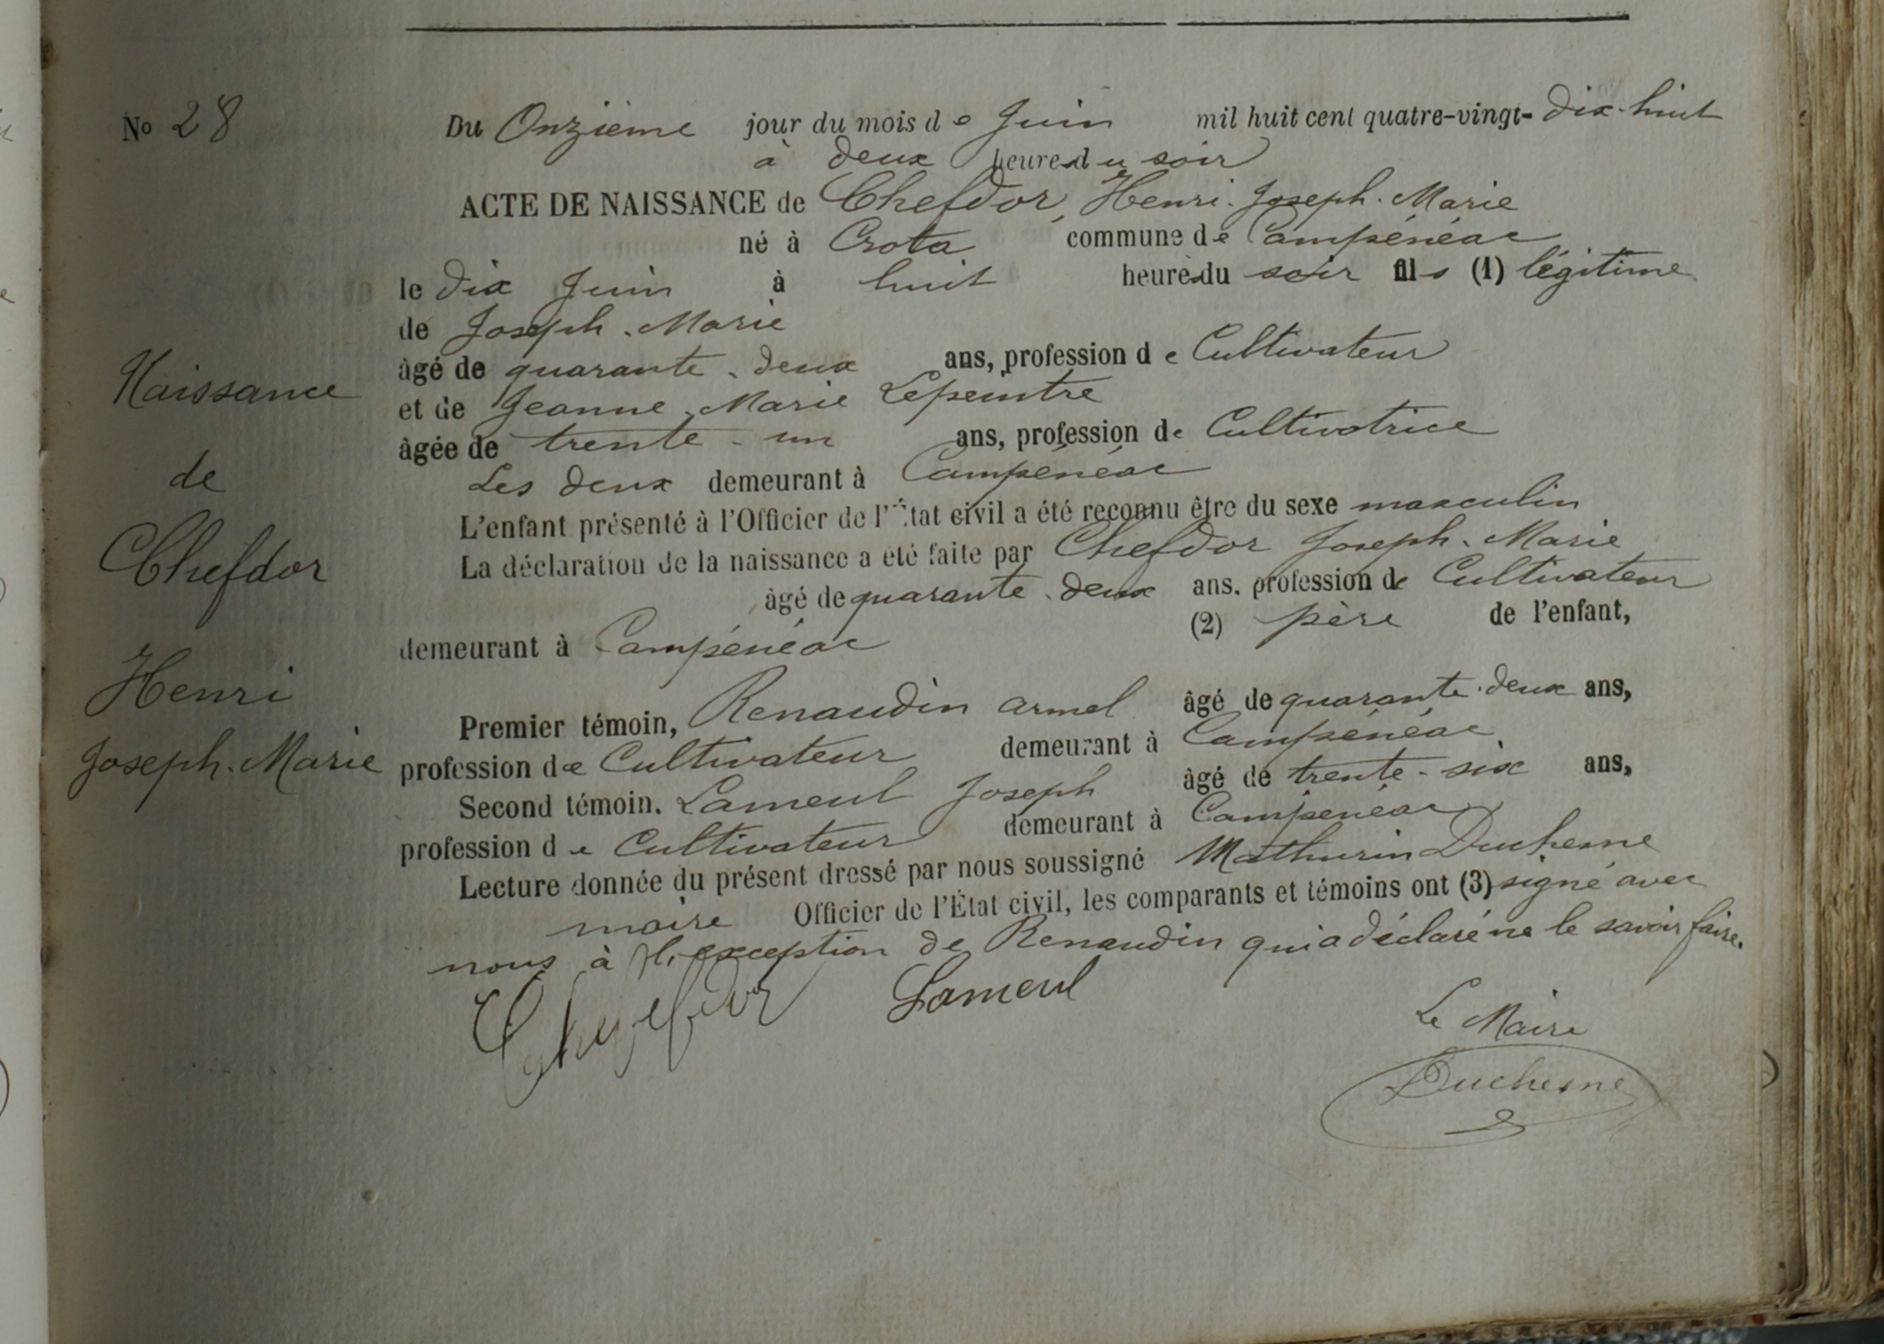 No 28
Du Onzième jour du mois de Juin mil huit cent quatre-vingt-dix-huit
à deux heures du soir
ACTE DE NAISSANCE de Chefdor, Henri-Joseph-Marie
né à Crota commune de Campénéac
le dix Juin à huit heures du soir fils (1) légitime
de Joseph-Marie
âgé de quarante-deux ans, profession de Cultivateur
et de Jeanne-Marie Lepeintre
âgée de trente-un ans, profession de Cultivatrice
Les deux demeurant à Campénéac
L'enfant présenté à l'Officier de l'État civil a été reconnu être du sexe masculin
La déclaration de la naissance a été faite par Chefdor Joseph-Marie
âgé de quarante-deux ans, profession de Cultivateur
demeurant à Campénéac (2) père de l'enfant,
Premier témoin, Renaudin Armel âgé de quarante-deux ans,
profession de Cultivateur demeurant à Campénéac
Second témoin. Lameul Joseph âgé de trente-six ans,
profession de Cultivateur demeurant à Campénéac
Lecture donnée du présent dressé par nous soussigné Mathurin Duchesne
maire Officier de l'État civil, les comparants et témoins ont (3) signé avec
nous à l'exception de Renaudin qui a déclaré ne le savoir faire.
Chefdor Lameul
Le Maire
Duchesne
Naissance
de
Chefdor
Henri
Joseph-Marie